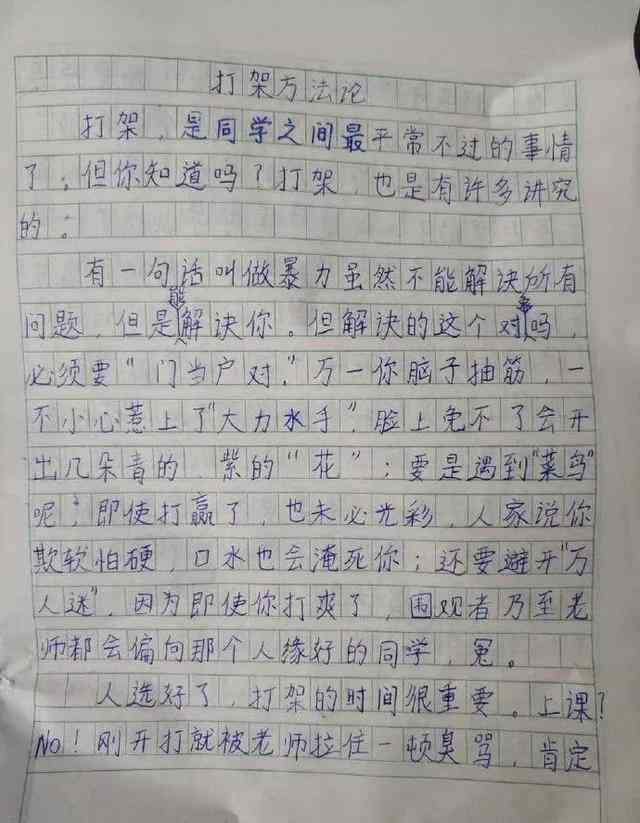 打架方法论
打架，是同学之间最平常不过的事情
了，但你知道吗？打架，也是有许多讲究
的。
有一句话叫做暴力虽然不能解决所有
问题，但是能解决你。但解决的这个对象吗，
必须要“门当户对，”万一你脑子抽筋，一
不小心惹上了“大力水手”，脸上免不了会开
出几朵青的，紫的“花”；要是遇到“菜鸟”
呢，即使打赢了，也未必光彩，人家说你
欺软怕硬，口水也会淹死你；还要避开“万
人迷”，因为即使你打爽了，围观者乃至老
师都会偏向那个人缘好的同学，冤。
人选好了，打架的时间很重要。上课？
No！刚开打就被老师拉住一顿臭骂，肯定